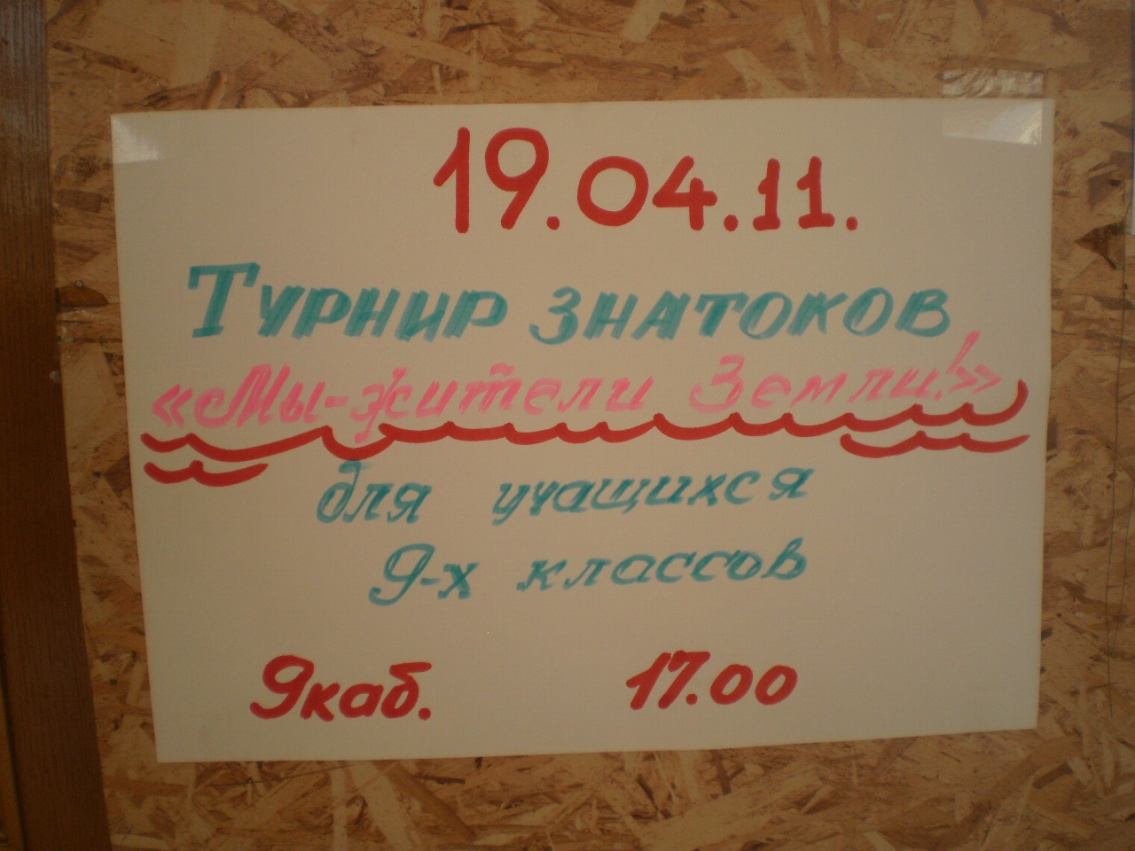 19.04.11.
Турнир знатоков
«Мы-жители Земли!»
для учащихся
9-х классов
9каб. 17.00